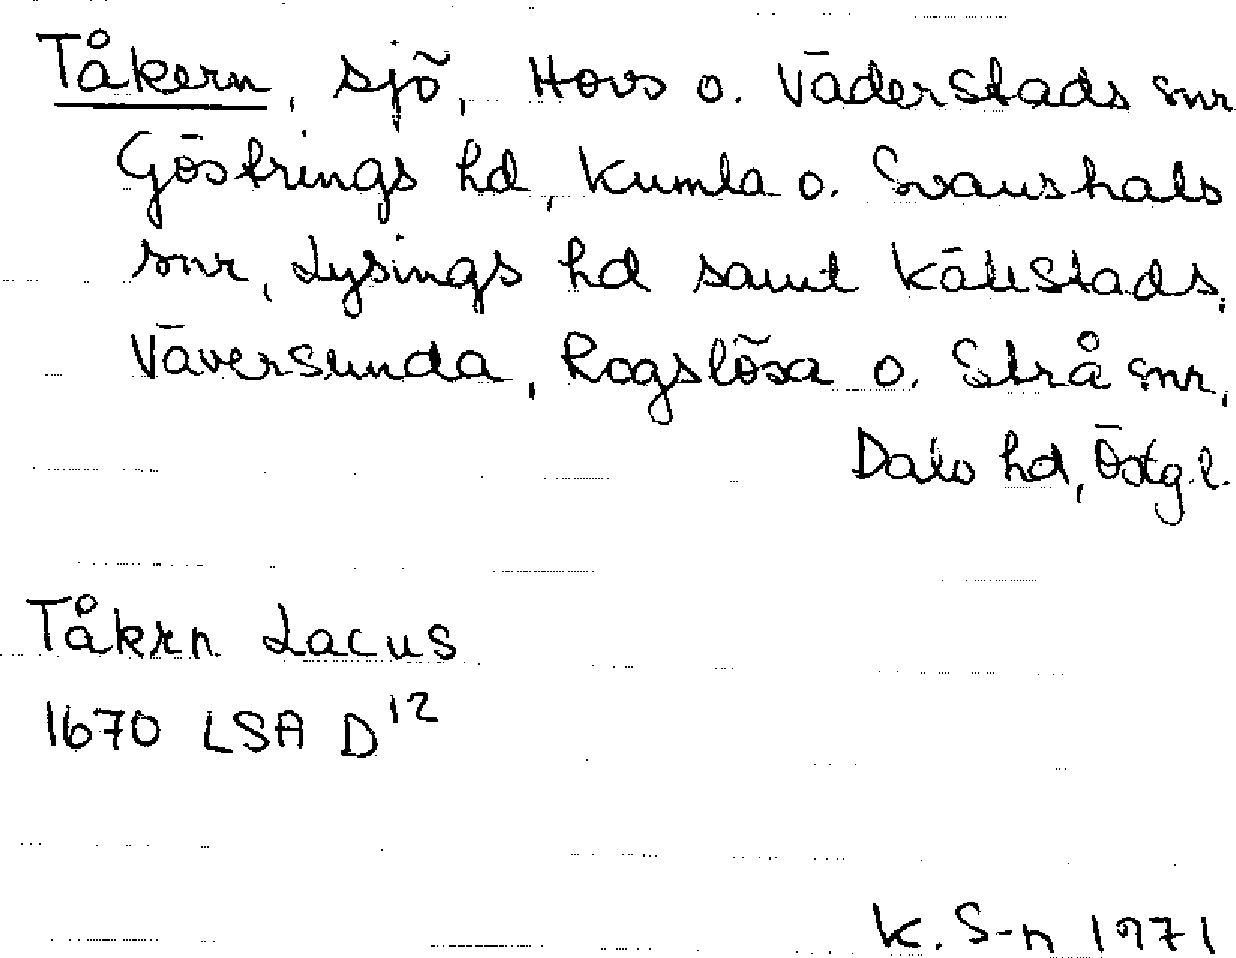 Tåkern, sjö, Hovs o. Väderstads snr
Göstrings hd, Kumla o. Svanshals
snr, Lysings hd samt Källstads,
Väversunda, Rogslösa o. Strå snr,
Dals hd, Östg.l.
Tåkrn Lacus
1670 LSA D12
K. S-n 1971